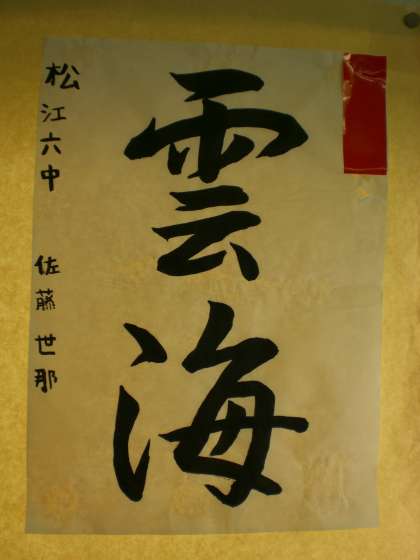 雲海
松江六中 佐藤世那